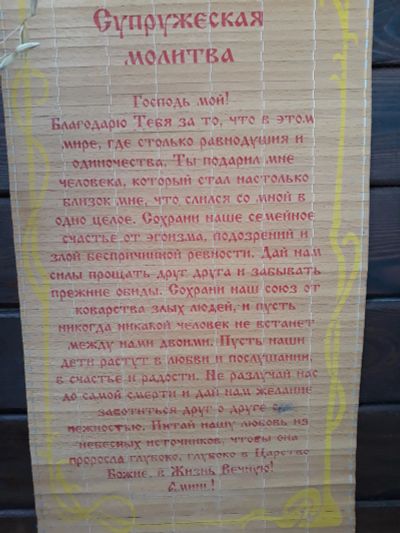 Супружеская
молитва
Господь мой!
Благодарю Тебя за то, что в этом
мире, где столько равнодушия и
одиночества, Ты подарил мне
человека, который стал настолько
близок мне, что слился со мной в
одно целое. Сохрани наше семейное
счастье от эгоизма, подозрений и
злой беспричинной ревности. Дай нам
силы прощать друг друга и забывать
прежние обиды. Сохрани наш союз от
коварства злых людей, и пусть
никогда никакой человек не встанет
между нами двоими. Пусть наши
дети растут в любви и послушании,
в счастье и радости. Не разлучай нас
до самой смерти и дай нам желание
заботиться друг о друге с
нежностью. Питай нашу любовь из
небесных источников, чтобы она
проросла глубоко, глубоко в Царство
Божие, в Жизнь Вечную!
Аминь!